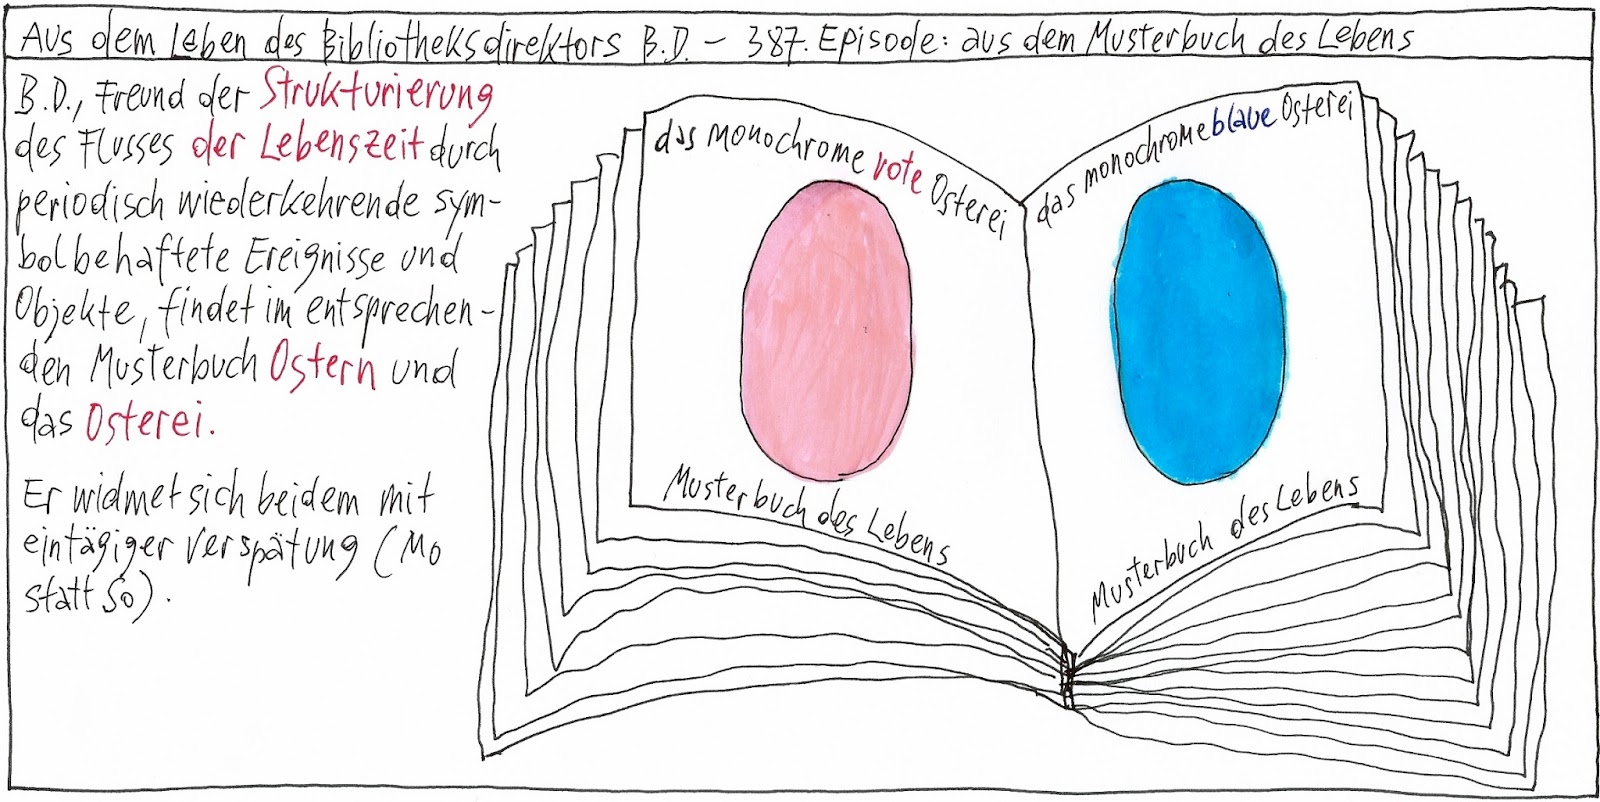 Aus dem Leben des Bibliotheksdirektors B.D. – 387. Episode: aus dem Musterbuch des Lebens
B.D., Freund der Strukturierung
des Flusses der Lebenszeit durch
periodisch wiederkehrende sym-
bolbehaftete Ereignisse und
Objekte, findet im entsprechen-
den Musterbuch Ostern und
das Osterei.
Er widmet sich beidem mit
eintägiger Verspätung (Mo
statt So).
das monochrome rote Osterei
Musterbuch des Lebens
das monochrome blaue Osterei
Musterbuch des Lebens